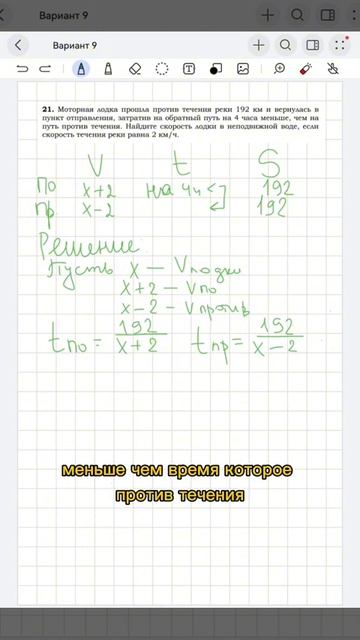 Вариант 9
Вариант 9
21. Моторная лодка прошла против течения реки 192 км и вернулась в
пункт отправления, затратив на обратный путь на 4 часа меньше, чем на
путь против течения. Найдите скорость лодки в неподвижной воде, если
скорость течения реки равна 2 км/ч.
V t S
По x+2 на 4ч 192
Пр. x-2 192
Решение
Пусть x — Vлодки
x+2 — Vпо
x-2 - Vпротив
tпо = 192/x+2 tпр = 192/x-2
меньше чем время которое
против течения